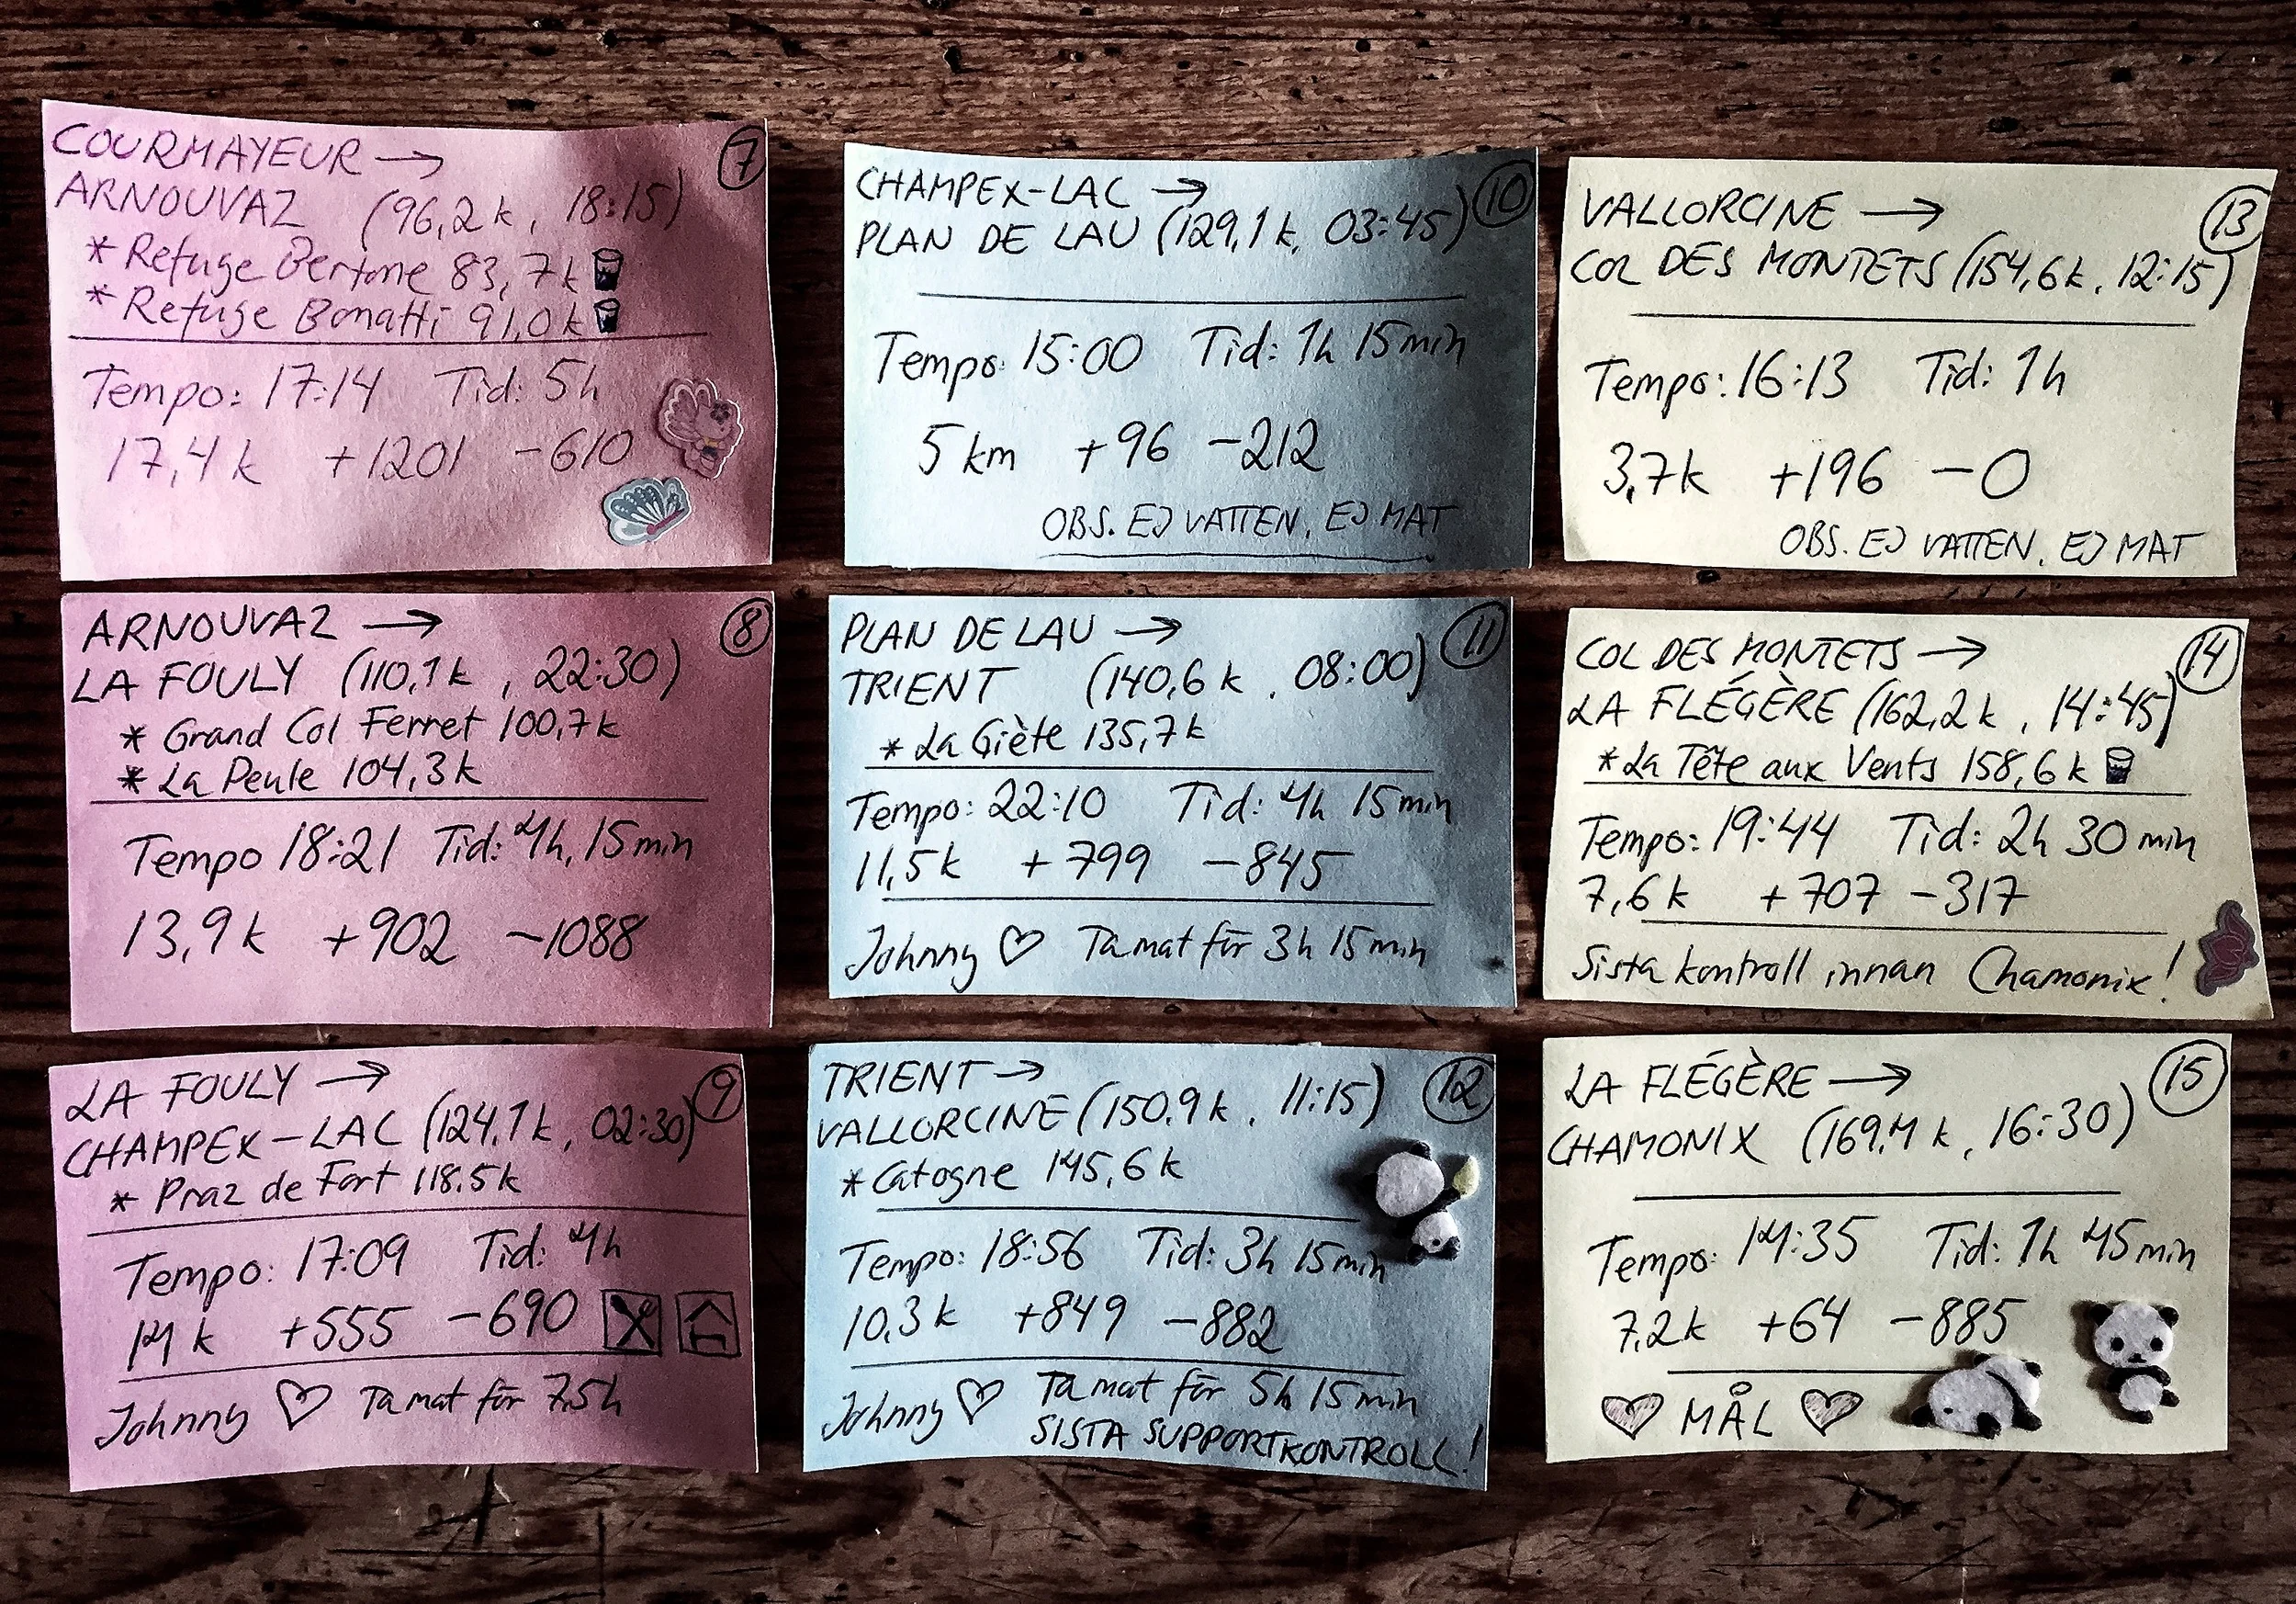 COURMAYEUR → 7
ARNOUVAZ (96,2 k, 18:15)
* Refuge Bertone 83,7k
* Refuge Bonatti 91,0k
Tempo: 17:14 Tid: 5h
17,4 k +1201 -610
ARNOUVAZ → 8
LA FOULY (110,1 k, 22:30)
* Grand Col Ferret 100,7k
* La Peule 104,3k
Tempo 18:21 Tid: 4h, 15min
13,9k +902 -1088
LA FOULY → 9
CHAMPEX-LAC (124,1k, 02:30)
* Praz de Fort 118,5k
Tempo: 17:09 Tid: 4h
14 k +555 -690
Johnny ♡ Ta mat för 7,5h
CHAMPEX-LAC → 10
PLAN DE LAU (129,1 k, 03:45)
Tempo: 15:00 Tid: 1h 15min
5 km +96 -212
OBS. EJ VATTEN, EJ MAT
PLAN DE LAU → 11
TRIENT (140,6 k, 08:00)
* La Giète 135,7k
Tempo: 22:10 Tid: 4h 15min
11,5k +799 -845
Johnny ♡ Ta mat för 3h 15min
TRIENT → 12
VALLORCINE (150,9k, 11:15)
* Catogne 145,6k
Tempo: 18:56 Tid: 3h 15min
10,3k +849 -882
Johnny ♡ Ta mat för 5h 15min
SISTA SUPPORTKONTROLL!
VALLORCINE → 13
COL DES MONTETS (154,6k, 12:15)
Tempo: 16:13 Tid: 1h
3,7k +196 -0
OBS. EJ VATTEN, EJ MAT
COL DES MONTETS → 14
LA FLÉGÈRE (162,2k, 14:45)
* La Tête aux Vents 158,6k
Tempo: 19:44 Tid: 2h 30min
7,6k +707 -317
Sista kontroll innan Chamonix!
LA FLÉGÈRE → 15
CHAMONIX (169,4 k, 16:30)
Tempo: 14:35 Tid: 1h 45min
7,2k +64 -885
♡ MÅL ♡